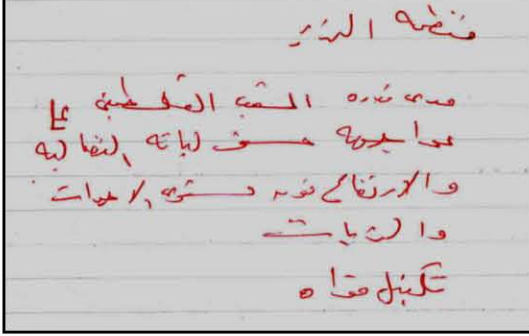 منظمة التحرير
مدى قدرة الشعب الفلسطيني على
مواجهة مسؤولياته النضالية
والارتفاع فوق مستوى الاحداث
والتحديات
تكبيل قواه